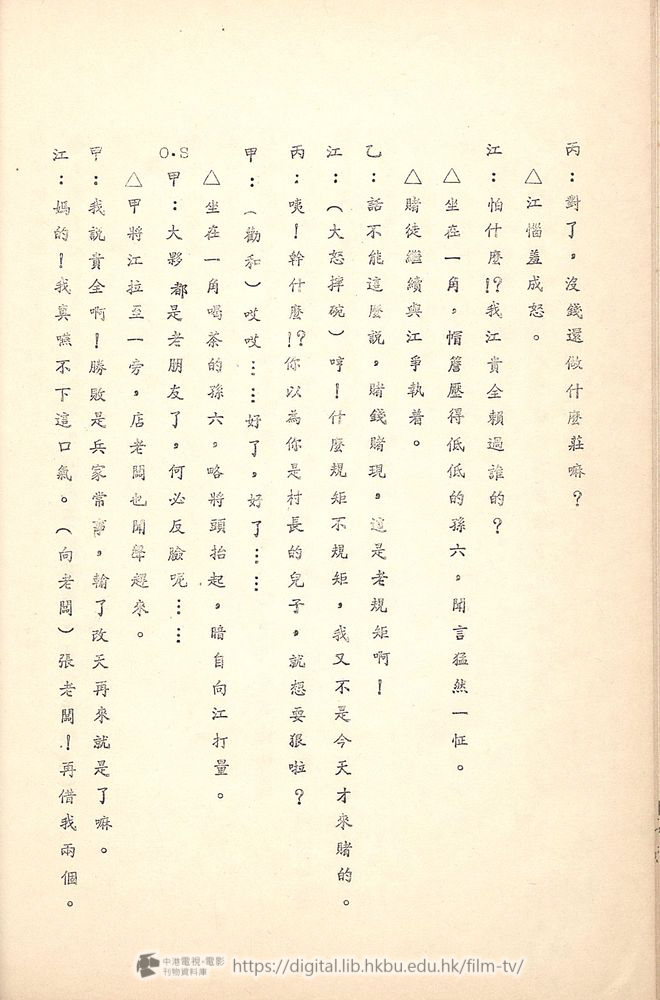 丙：對了，沒錢還做什麼莊嘛？
△江惱羞成怒。
江：怕什麼!?我江貴全賴過誰的？
△坐在一角，帽簷壓得低低的孫六，聞言猛然一怔。
△賭徒繼續與江爭執着。
乙：話不能這麼説，賭錢賭現，這是老規矩啊！
江：（大怒摔碗）哼！什麼規矩不規矩，我又不是今天才來賭的。
丙：咦！幹什麼!?你以為你是村長的兒子，就想耍狠啦？
甲：（勸和）哎哎……好了，好了……
△坐在一角喝茶的孫六，略將頭抬起，暗自向江打量。
O.S甲：大夥都是老朋友了，何必反臉呢……
△甲將江拉至一旁，店老闆也聞聲趕來。
甲：我說貴全啊！勝敗是兵家常事，輸了改天再來就是了嘛。
江：媽的！我真嚥不下這口氣。（向老闆）張老闆！再借我兩個。
中港電視·電影
刊物資料庫
https://digital.lib.hkbu.edu.hk/film-tv/